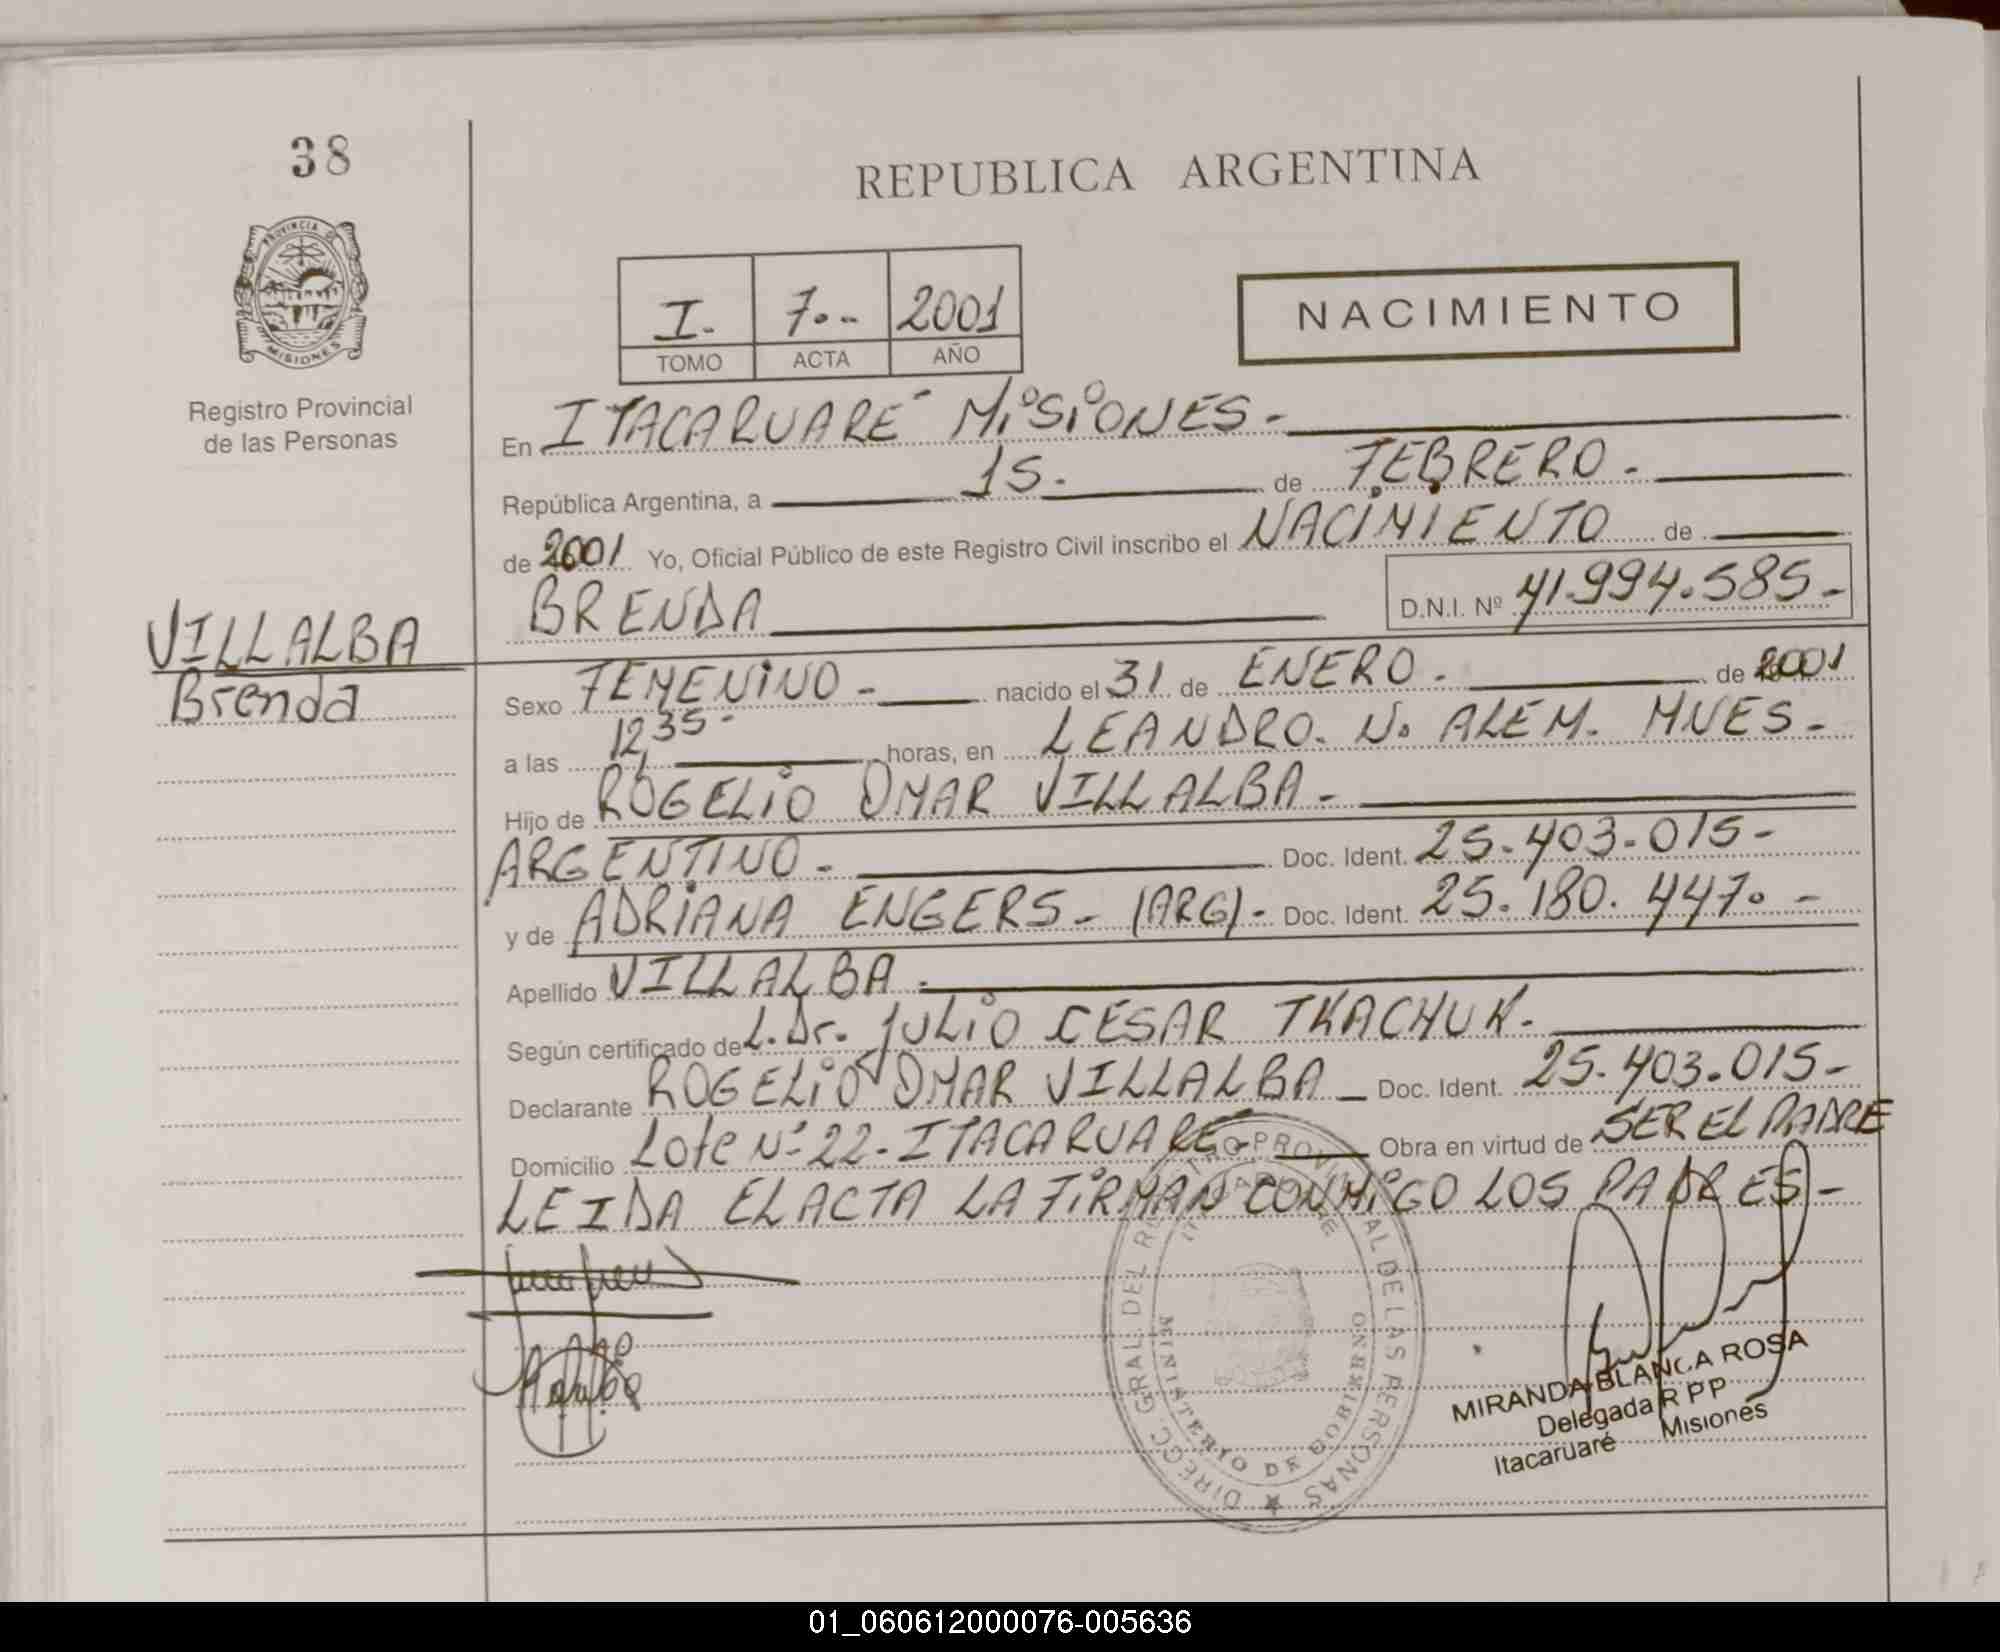 38
REPUBLICA ARGENTINA
PROVINCIA DE
MISIONES
I. 7.-- 2001
TOMO ACTA AÑO
NACIMIENTO
Registro Provincial
de las Personas
En ITACARUARÉ MiSiONES -
República Argentina, a 15. de FEBRERO.
de 2001 Yo, Oficial Público de este Registro Civil inscribo el NACIMIENTO de
BRENDA D.N.I. Nº 41.994.585-
VILLALBA
Brenda
Sexo FEMENiNO - nacido el 31 de ENERO. de 2001
a las 12,35- horas, en LEANDRO. N. ALEM. MNES-
Hijo de ROGELiO OMAR VILLALBA-
ARGENTINO- Doc. Ident. 25.403.015-
y de ADRiANA ENGERS- (ARG)- Doc. Ident. 25.180.447.-
Apellido VILLALBA.
Según certificado de L. Dr. JULiO CESAR TKACHUK.
Declarante ROGELiO OMAR VILLALBA Doc. Ident. 25.403.015-
Domicilio Lote Nº 22-ITACARUARE- Obra en virtud de SER EL PADRE
LEIDA EL ACTA LA FiRMAN CONMiGO LOS PADRES-
DIRECC. GRAL. DEL REGISTRO PROVINCIAL DE LAS PERSONAS
ITACARUARE
MINISTERIO DE GOBIERNO
MIRANDA BLANCA ROSA
Delegada R P P
Itacaruaré Misiones
01_060612000076-005636